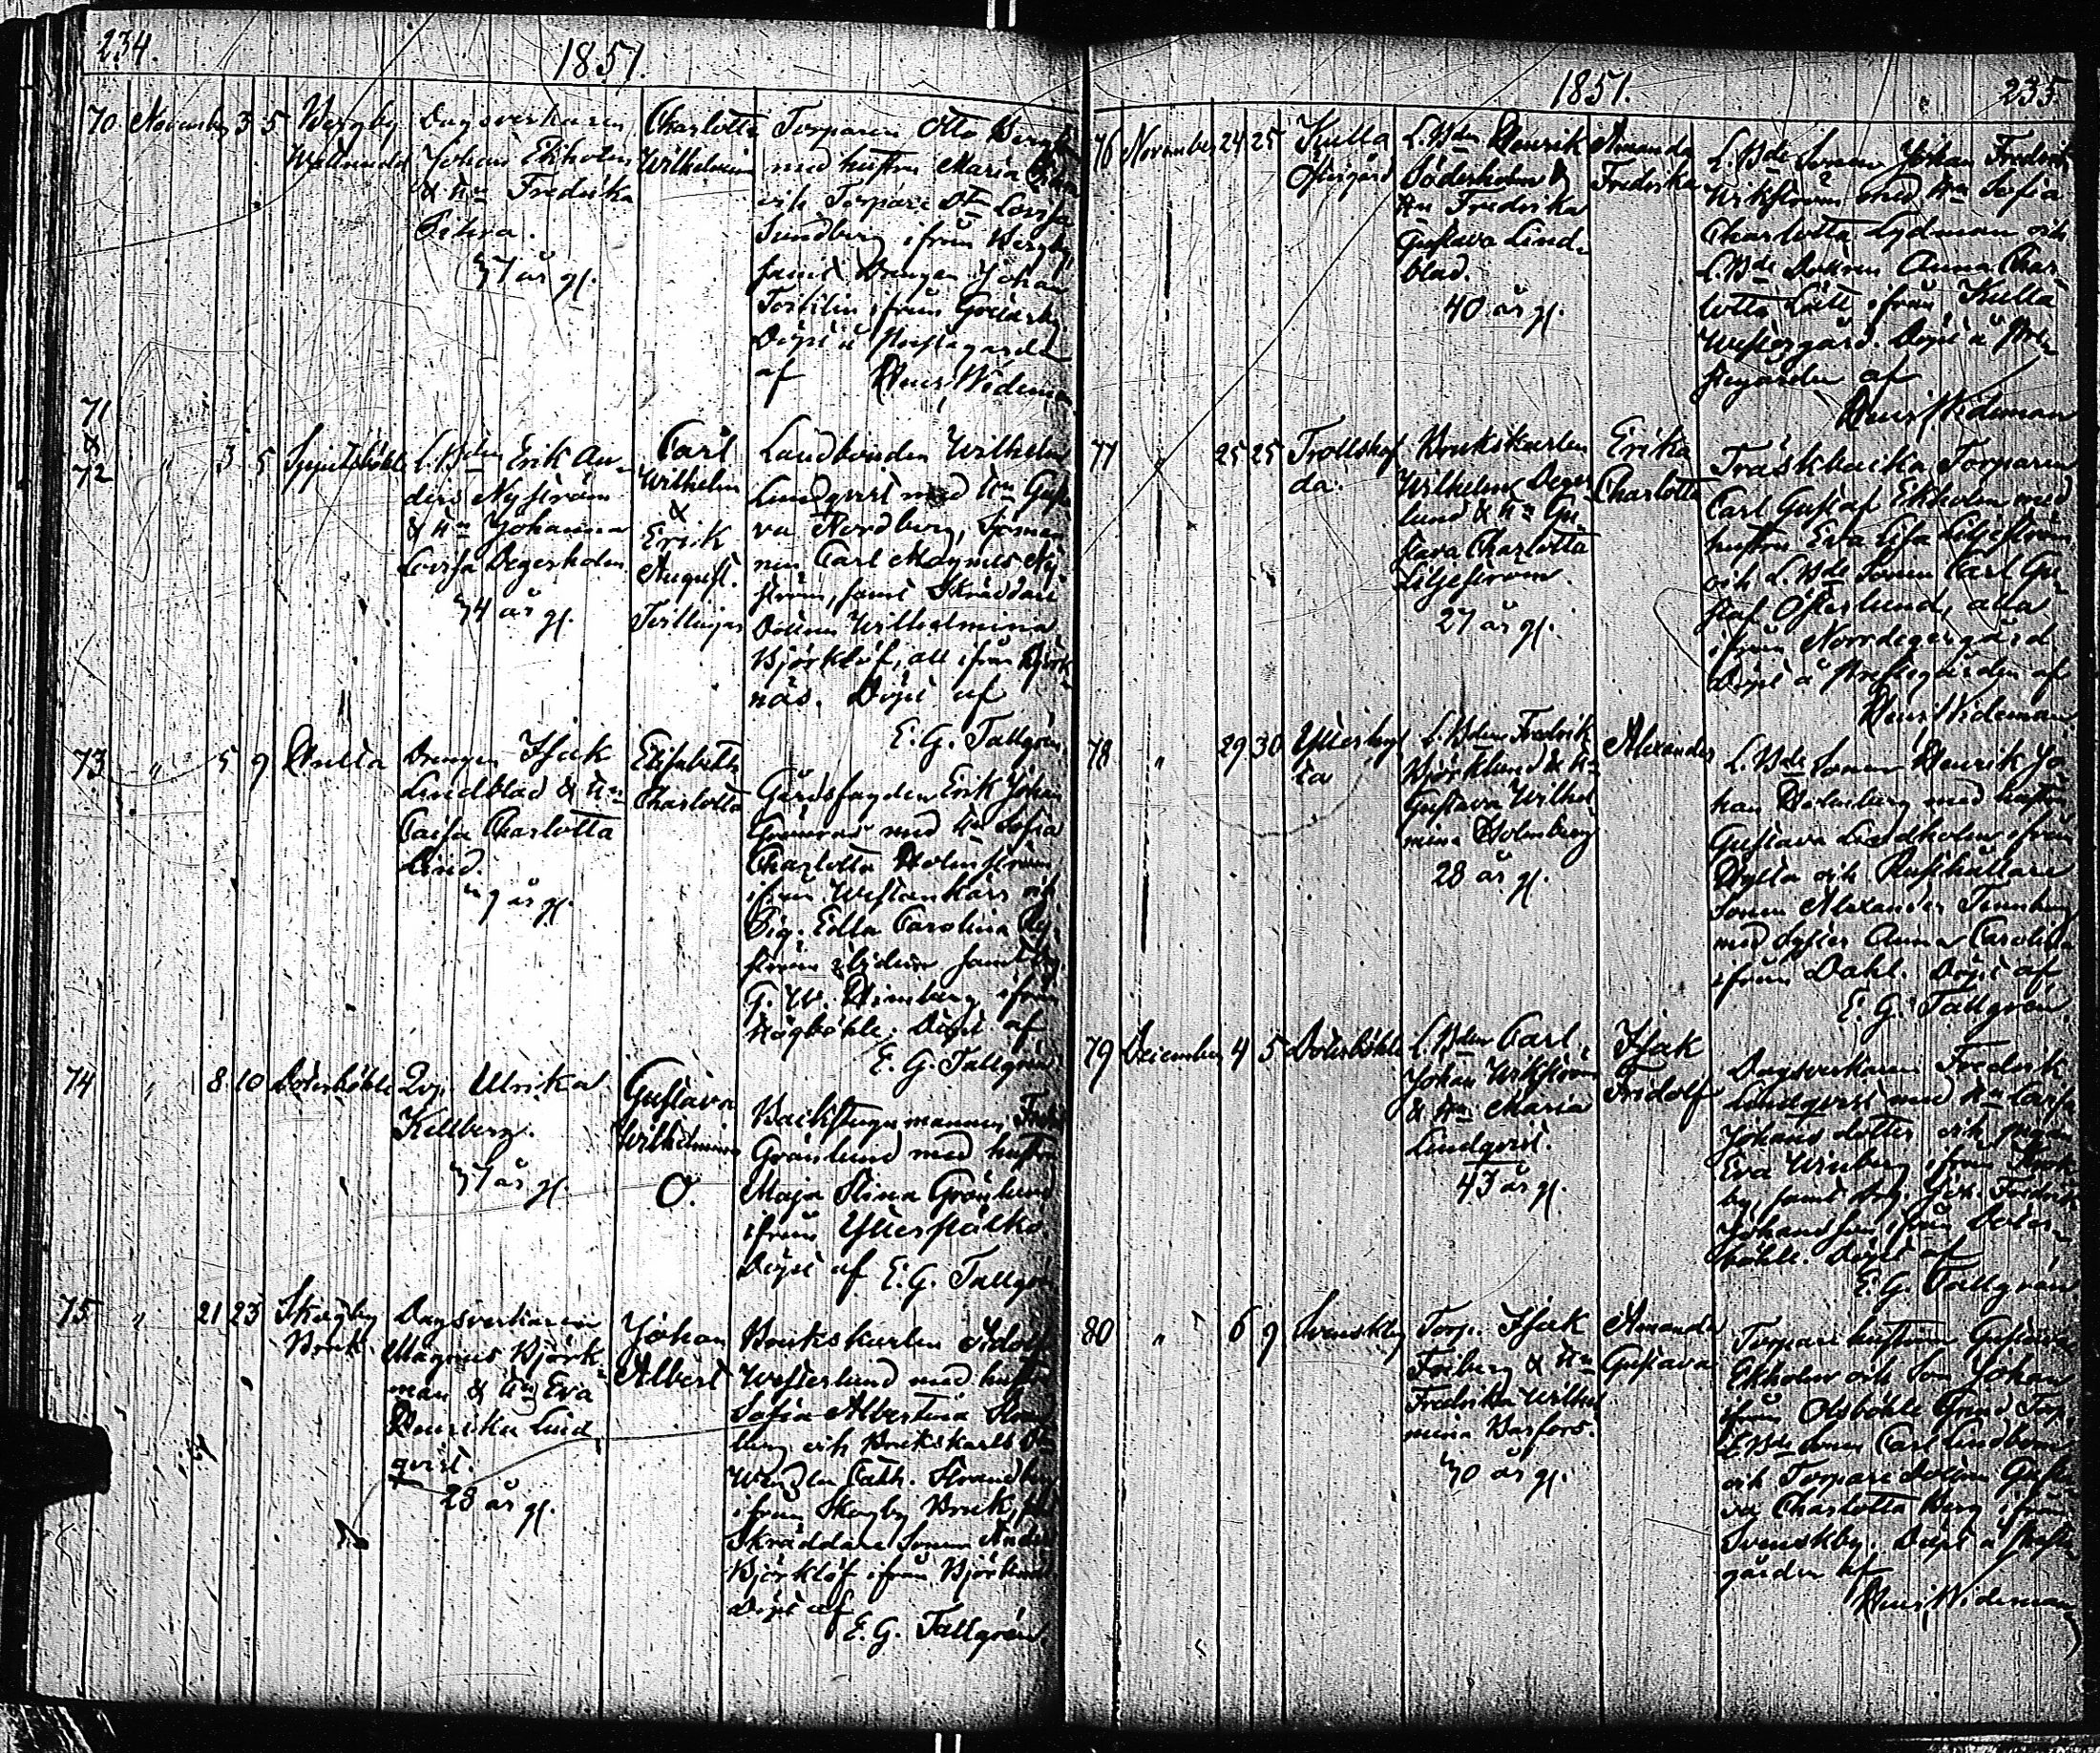 234.
1851.
70 November 3 5 Bergby
Dagsverkaren
Johan Ekholm
& Hu Fredrika
år gl.
Charlotta
Wilhelmina
Torparen Otto
med hustru Maria
och Torpare Lovisa
Sundberg ifrån Bergby
samt Drengen Johan
ifrån
Döpt å Prestegården
af Henr. Wideman
71
&
72 " 3 5
L.Bden Erik An-
ders Nyström
& Hu Johanna
Lovisa Degerholm
år gl.
Carl
Wilhelm
&
Erik
August.
Tvillingar
Landbonden Wilhelm
Lundqvist med Hu Gusta
va Nordberg,
Carl Magnus Ny-
ström, samt Skräddare
Dottren Wilhelmina
Björklöf, all ifrån Björk-
näs. Döpt af
E. G. Tallgrén.
73 " 5 9
Drengen Isak
Lindblad & Hu
Caisa Charlotta
Lind.
år gl.
Elisabeth
Charlotta
Erik Johan
med Hu Sofia
Charlotta Holmström
ifrån Westankärr och
Pig. Edla Carolina
samt
G. W. ifrån
Högböhle. Döpt af
E. G. Tallgrén
74 " 8 10 Dotterböhle
Ulrika
Kellberg.
år gl.
Gustava
Wilhelmina
O.
Backstugumannen
Grönlund med hustru
Maja Stina Grönlund
ifrån
Döpt af E. G. Tallgrén
75 " 21 23 Skogby
Bruk
Dagsverkaren
Magnus Björk-
man & Hu Eva
Henrika Lind
qvist.
28 år gl.
Johan
Albert
Brukskarlen Adolf
Westerlund med hustru
Sofia Albertina Strand
berg och Brukskarls
Cath. Strandberg
ifrån Skogby Bruk,
Skräddare Sonen
Björklöf ifrån
Döpt af
E. G. Tallgrén.
1851.
235.
76 November 24 25 Kulla
Östergård
L.Bden Henrik
Söderholm &
Hu Fredrika
Gustava Lind-
blad.
40 år gl.
Amanda
Fredrika
L.Bde Sonen Johan Fredrik
Wikström med Hu Sofia
Charlotta Lydman och
L.Bde Dottren Anna Char-
lotta Lätt ifrån Kulla
Westergård. Döpt å Pre-
stegården af
Henr. Wideman
77 " 25 25 Trollshof
da.
Brukskarlen
Wilhelm Deger
lund & Hu Gu
stava Charlotta
Liljeström.
27 år gl.
Erika
Charlotta
Träskbacka Torparen
Carl Gustaf Ekholm med
hustru Eva Lisa Liljeström
och L.Bde Sonen Carl Gu-
staf Österlund, alla
ifrån Norrdegergård
Döpt å Prestegården af
Henr. Wideman
78 " 29 30 Ytterby
L.Bden Fredrik
Björklund & Hu
Gustava Wilhel
mina Holmberg
28 år gl.
Alexander
L.Bde Sonen Henrik Jo
han Holmberg med hustru
Gustava Lindholm ifrån
och Rusthållare
Sonen Alexander
med Syster Anna Carolina
ifrån Dahl. Döpt af
E. G. Tallgrén.
79 December 4 5 Dotterböhle
L.Bden Carl
Johan Wikström
& Hu Maria
Lindqvist.
43 år gl.
Isak
Fridolf
Dagsverkaren Fredrik
Lindqvist med Hu Lovisa
Johansdotter och pigan
Eva Winberg ifrån
by, samt Joh. Fredrik
Johansson ifrån Dotter-
böhle. Döpt af
E. G. Tallgrén
80 " 6 9 Svenskby
Torp. Isak
& Hu
Fredrika Wilhel
mina Barfors.
år gl.
Amanda
Gustava
Torpare hustrun Gustava
Ekholm och Son Johan
ifrån Olsböhle
L.Bde Sonen Carl Lindbom
och Torpare Dottren Gusta-
va Charlotta Berg ifrån
Svenskby. Döpt å Preste-
gården af
Henr. Wideman